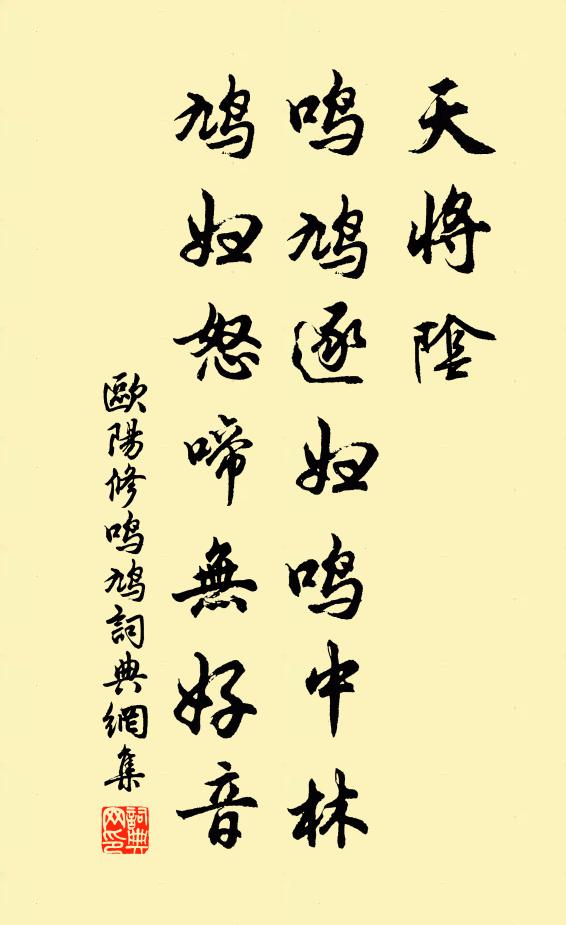 天將陰
鳴鳩逐婦鳴中林
鳩婦怒啼無好音
歐陽修鳴鳩詞典網集
詞典网印